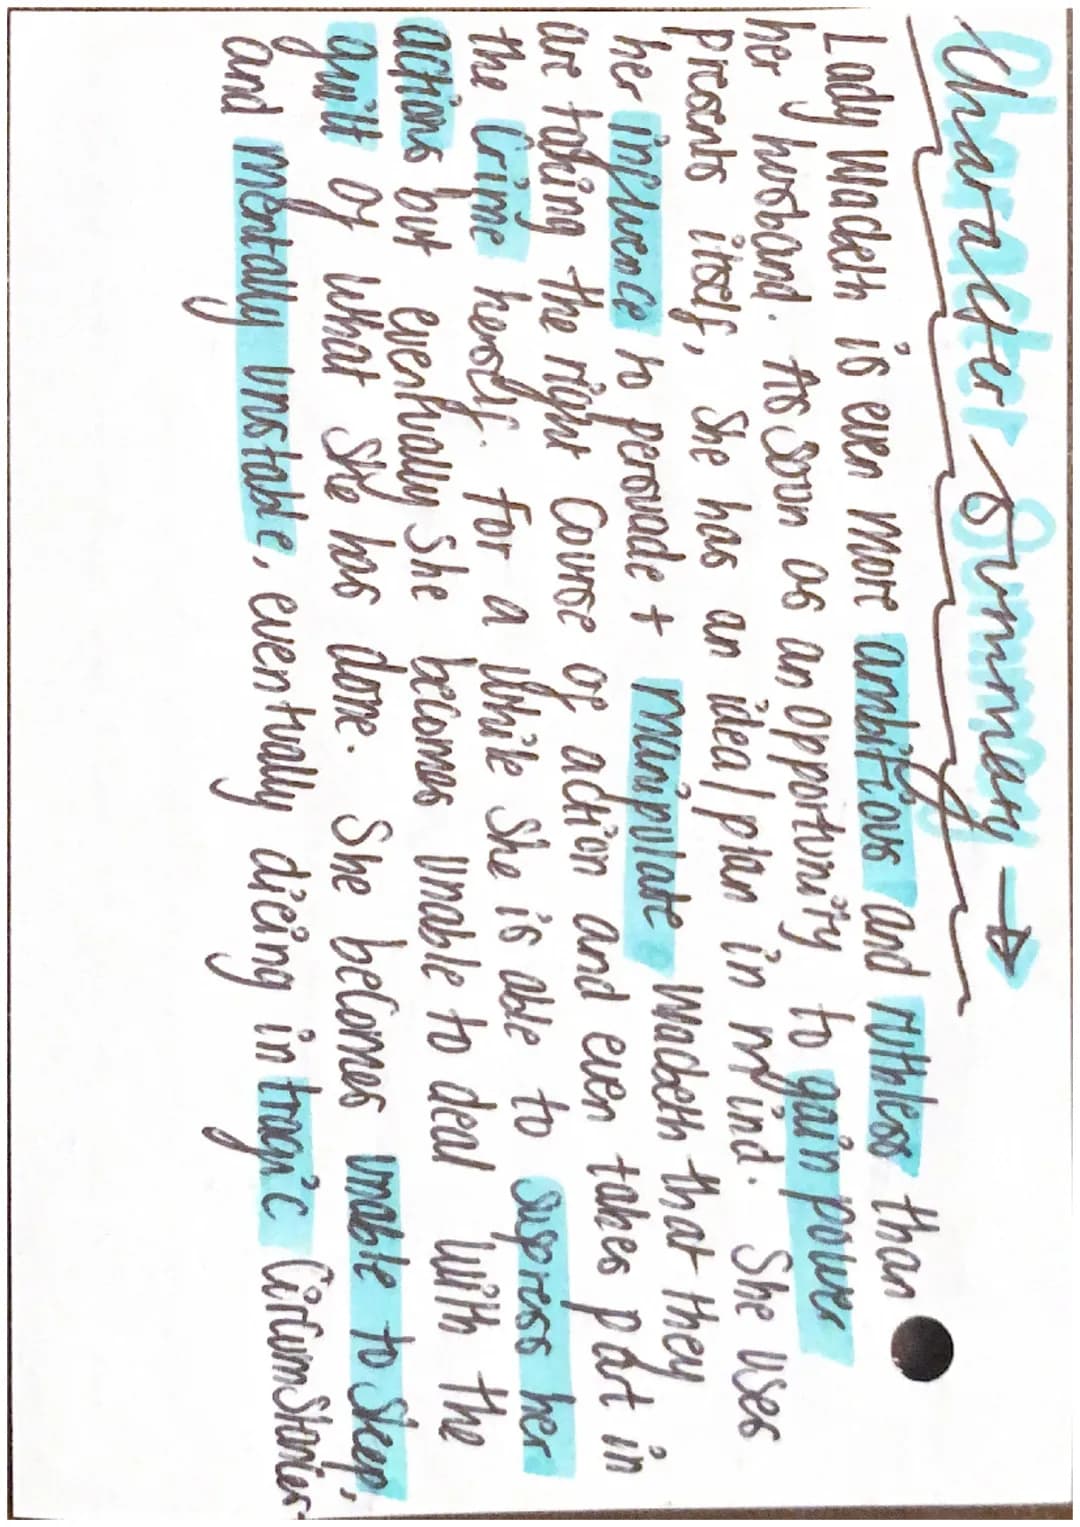 Character Summary →
Lady Macbeth is even more ambitious and ruthless than
her husband. As soon as an opportunity to gain power
presents itself, she has an idea/plan in mind. She uses
her influence to persuade + manipulate Macbeth that they
are taking the right course of action and even takes part in
the crime herself. For a while she is able to supress her
actions but eventually she becomes unable to deal with the
guilt of what she has done. She becomes unable to sleep,
and mentally unstable, eventually dieing in tragic